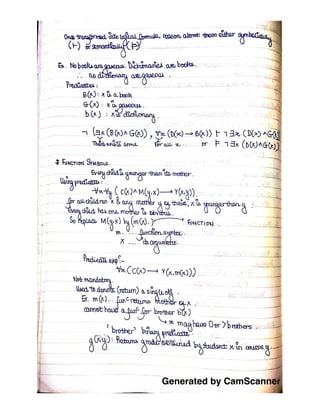 Once transformed into logical formula, reason about them either symbolically
(⊢) or semantically (⊨)
Ex. No books are gaseous. Dictionaries are books.
∴ no dictionary are gaseous.
Predicates:
B(x): x is a book
G(x): x is gaseous.
D(x): x is dictionary.
¬(∃x(B(x)∧G(x)), ∀x(D(x)→B(x)) ⊢ ¬∃x(D(x)∧G(x))
There exists some for all x or ⊨ ¬∃x(D(x)∧G(x))
# FUNCTION SYMBOLS:
Every child is younger than its mother.
Using predicates:
∀x∀y(C(x)∧M(y,x)→Y(x,y))
for all children x & any mother y of theirs, x is younger than y.
Every child has one mother is obvious.
So replace M(y,x) by (m(x)) FUNCTION
m... function symbol
x .... its argument
Predicate exp:
∀x(C(x)→Y(x,m(x)))
Not mandatory
Used to denote (return) a single obj.
Ex. m(x)... func returns mother of x.
cannot have a func for brother b(x)
x may have 0 or >1 brothers.
'brother' binary predicate
g(x,y): Returns grade obtained by student x in course y.
Generated by CamScanner